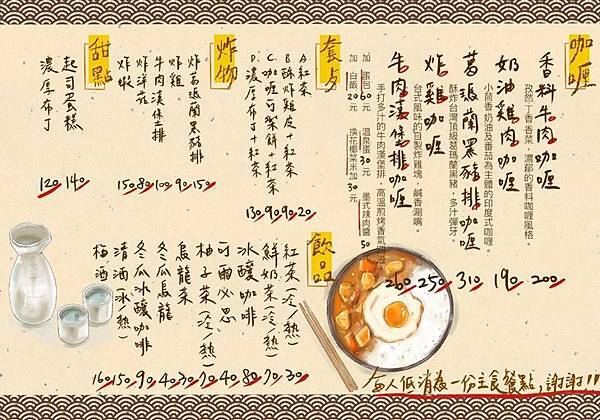 咖喱
香料牛肉咖喱
孜然丁香香菜,濃郁的香料咖喱風格。
200
奶油雞肉咖喱
小茴香奶油及番茄為主體的印度式咖喱。
190
葛瑪蘭黑豬排咖喱
酥炸台灣頂級葛瑪蘭黑豬,多汁彈牙。
310
炸雞咖喱
台式風味的自製炸雞塊,鹹香涮嘴。
250
牛肉漢堡排咖喱
手打多汁的牛肉漢堡排,高溫煎烤香氣
260
加 蛋包60元 溫泉蛋30元 墨式辣肉醬50元
加 白飯20元 換花椰菜米加30元
套餐
A.紅茶
20
B.酥炸雞皮+紅茶
90
C.咖喱可樂餅+紅茶
90
D.濃厚布丁+紅茶
130
炸物
炸葛瑪蘭黑豬排
150
炸雞
90
牛肉漢堡排
110
炸洋蔥
80
炸蝦
150
甜點
起司蛋糕
140
濃厚布丁
120
飲品
紅茶(冷/熱)
30
鮮奶茶(冷/熱)
70
冰釀咖啡
80
可爾必思
40
柚子茶(冷/熱)
70
烏龍茶
30
冬瓜烏龍
40
冬瓜冰釀咖啡
90
清酒(冰/熱)
150
梅酒
160
每人低消為一份主食餐點,謝謝!!!